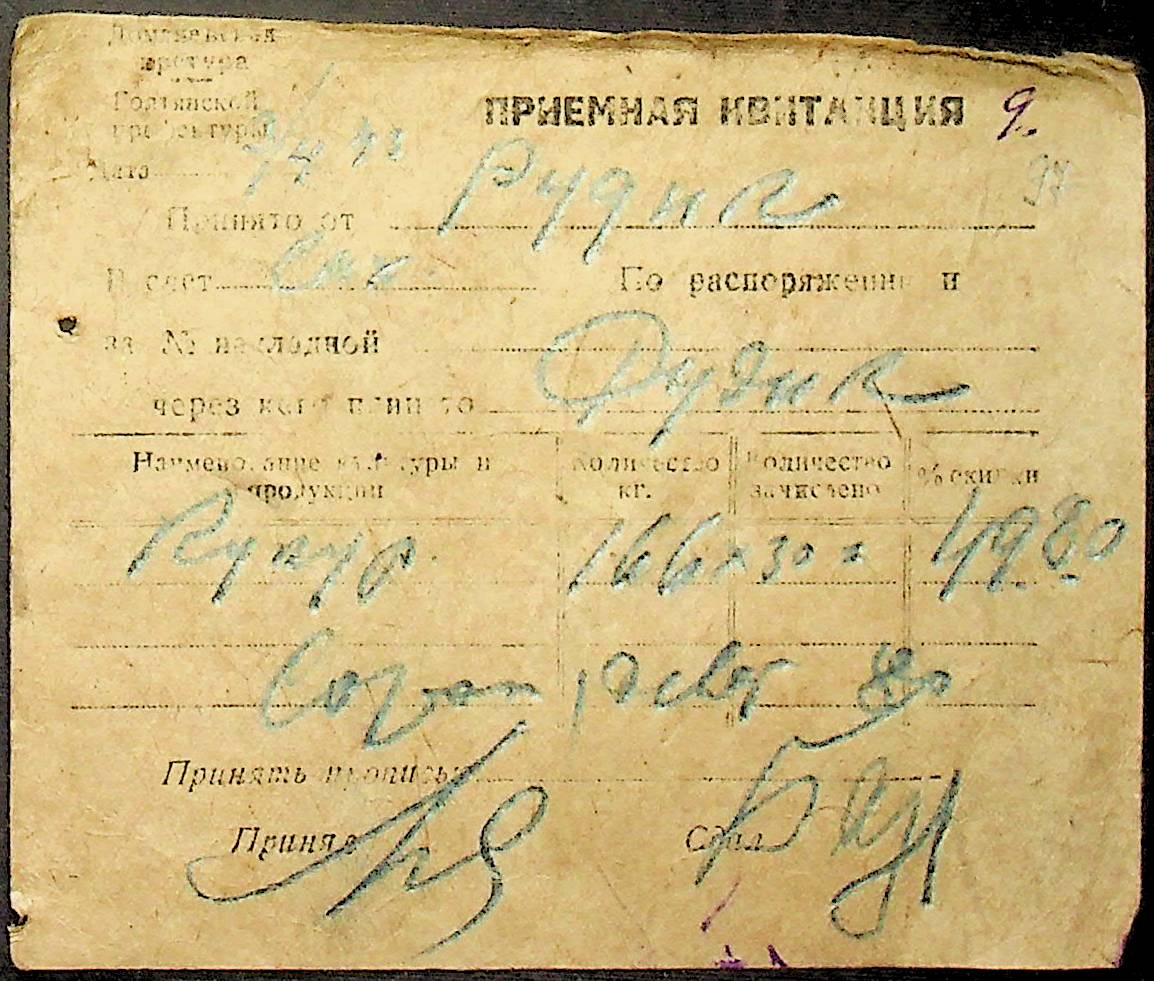 Доманевская
претура
Голтянской
префектуры
ПРИЕМНАЯ КВИТАНЦИЯ 9.
Дата 43
97
Принято от Рудик
В счет По распоряжению и
за № накладной
через кого принято Рудик
Наименование культуры и продукции Количество кг. Количество зачислено % скидки
Кукур. 166 х 30 = 49.80
Сорок девят 80
Принять прописью
Принял Сдал